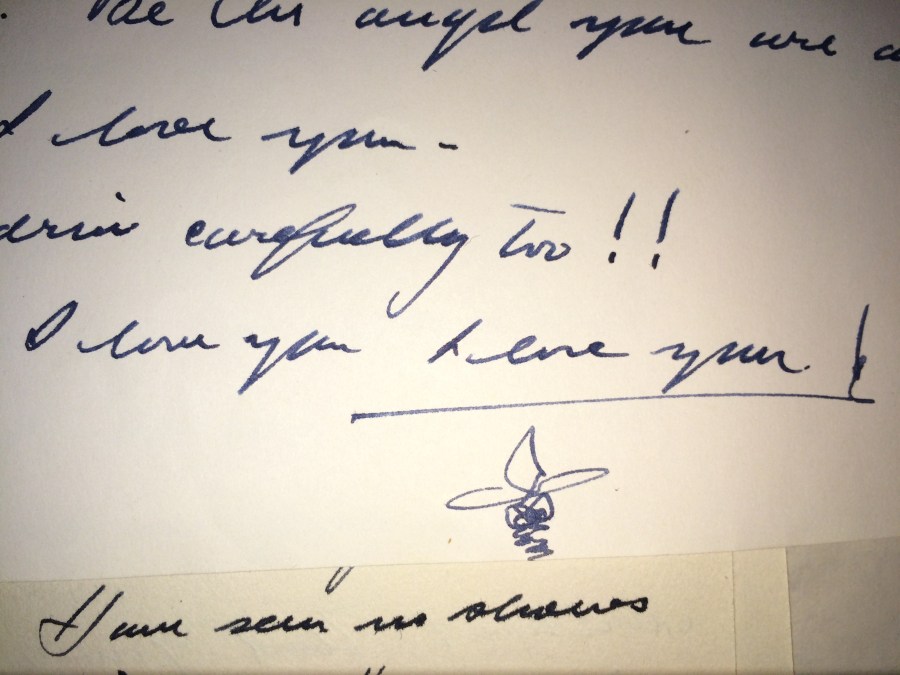 Be the angel you are
I love you -
drive carefully too!!
I love you I love you!
Have seen no shows